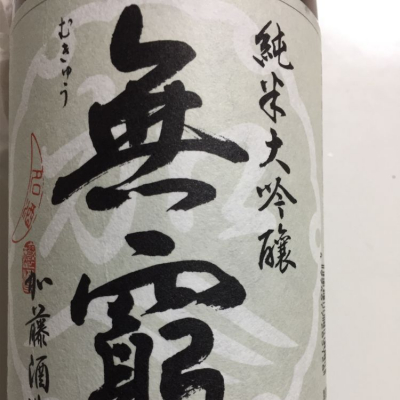 純米大吟醸
むきゅう
無窮
加藤酒